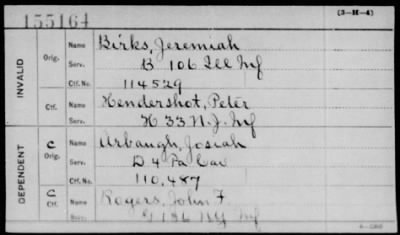 155164
(3-H-4)
INVALID
Orig.
Name Birks, Jeremiah
Serv. B 106 Ill Inf
Ctf. No. 114529
Ctf.
Name Hendershot, Peter
Serv. H 33 N.J. Inf
DEPENDENT
C
Orig.
Name Arbaugh, Josiah
Serv. D 4 Pa Cav
Ctf. No. 110,487
C
Ctf.
Name Rogers, John F.
Serv. 186 NY Inf